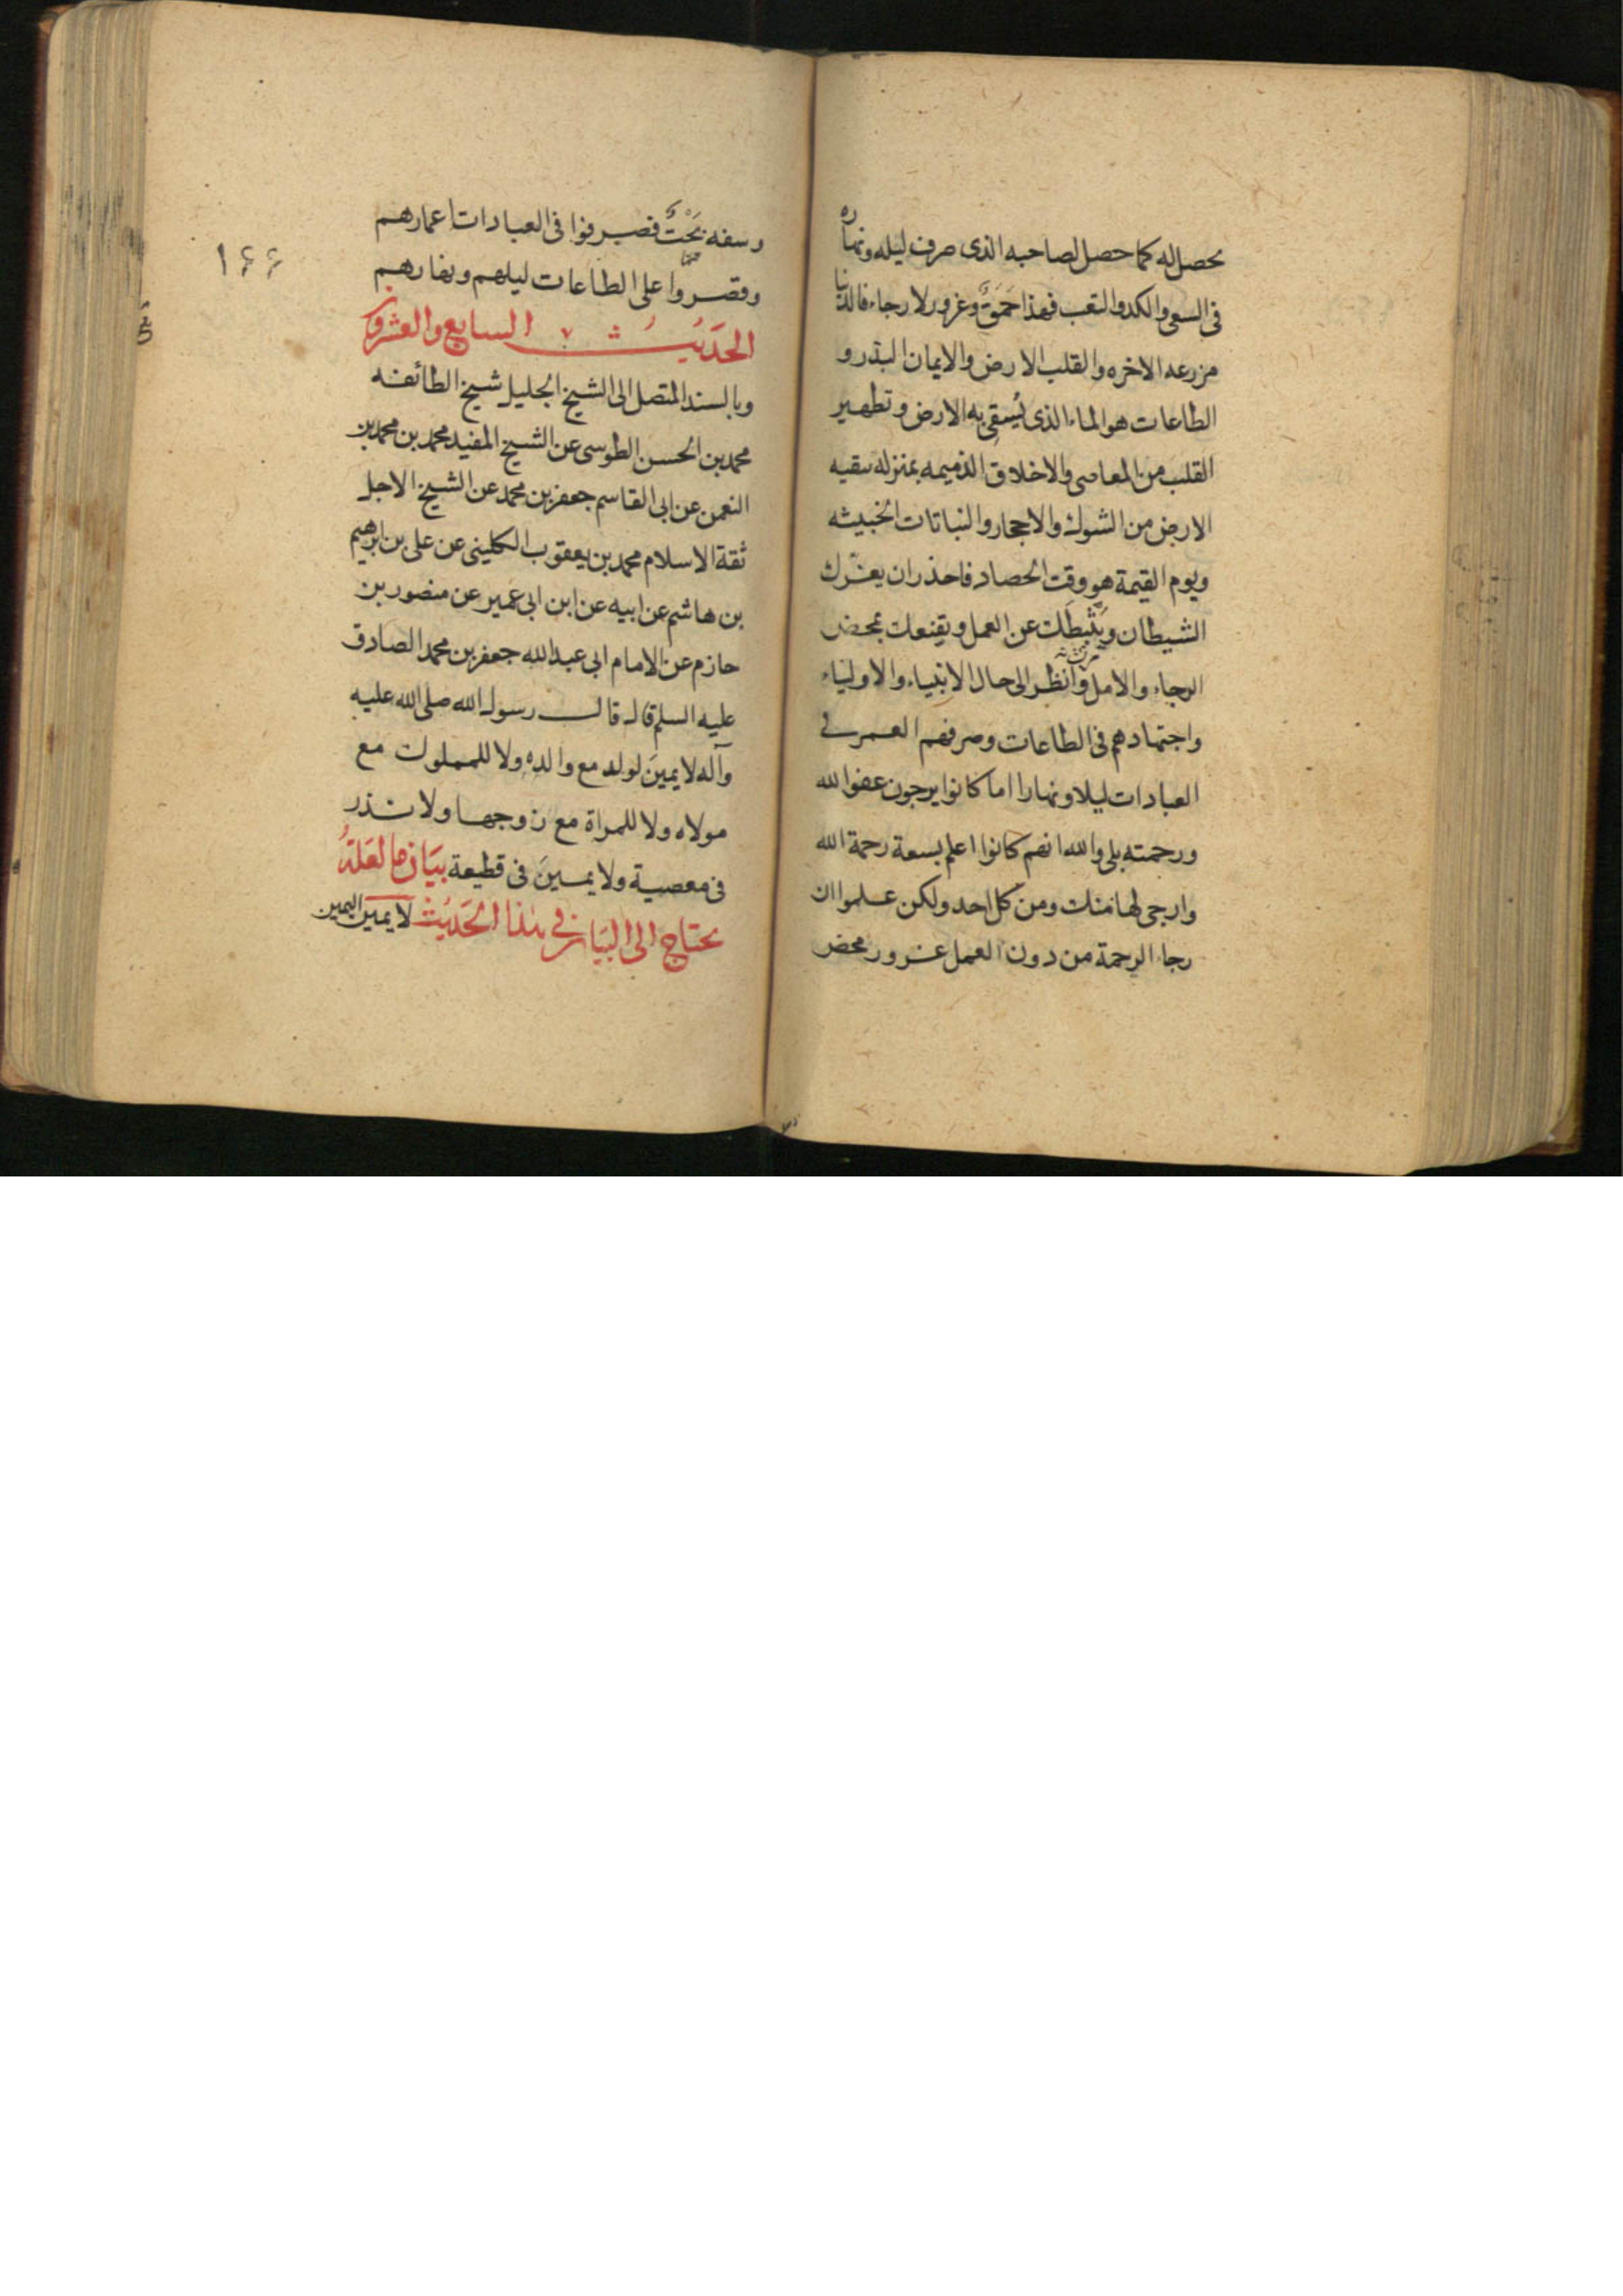 يحصل له كما حصل لصاحبه الذى صرف ليله ونهاره
فى السعى والكد والتعب فهذا حمق وغرور لا رجاء فالدنيا
مزرعه الاخره والقلب الارض والايمان البذر و
الطاعات هو الماء الذى يُسقى به الارض وتطهير
القلب من المعاصى والاخلاق الذميمه بمنزله تنقيه
الارض من الشوك والاحجار والنباتات الخبيثه
ويوم القيمة هو وقت الحصاد فاحذر ان يغترك
الشيطان ويُثبّطك عن العمل ويقنعك بمحض
الرجاء والامل وانظر الى حال الانبياء والاولياء
واجتهادهم فى الطاعات وصرفهم العمر فى
العبادات ليلا ونهارا اما كانوا يرجون عفو الله
ورحمته بلى والله انهم كانوا اعلم بسعة رحمة الله
وارجى لها منك ومن كل احد ولكن علموا ان
رجاء الرحمة من دون العمل غرور محض
١۶۶
وسفه بَحْتٌ فصرفوا فى العبادات اعمارهم
وقصروا على الطاعات ليلهم ونهارهم
الحَديثُ السابع والعشرون
وبالسند المتصل الى الشيخ الجليل شيخ الطائفه
محمد بن الحسن الطوسى عن الشيخ المفيد محمد بن محمد بن
النعمن عن ابى القاسم جعفر بن محمد عن الشيخ الاجل
ثقة الاسلام محمد بن يعقوب الكلينى عن على بن ابرهيم
بن هاشم عن ابيه عن ابن ابى عمير عن منصور بن
حازم عن الامام ابى عبدالله جعفر بن محمد الصادق
عليه السلم قال قال رسول الله صلى الله عليه
وآله لا يمينَ لولد مع والدهِ ولا للمملوك مع
مولاه ولا للمراة مع زوجها ولا نذر
فى معصية ولا يمينَ فى قطيعة بيَان ما لعَلّهُ
يحتاج الى البيَان فى هذا الحَديث لا يمين اليمين